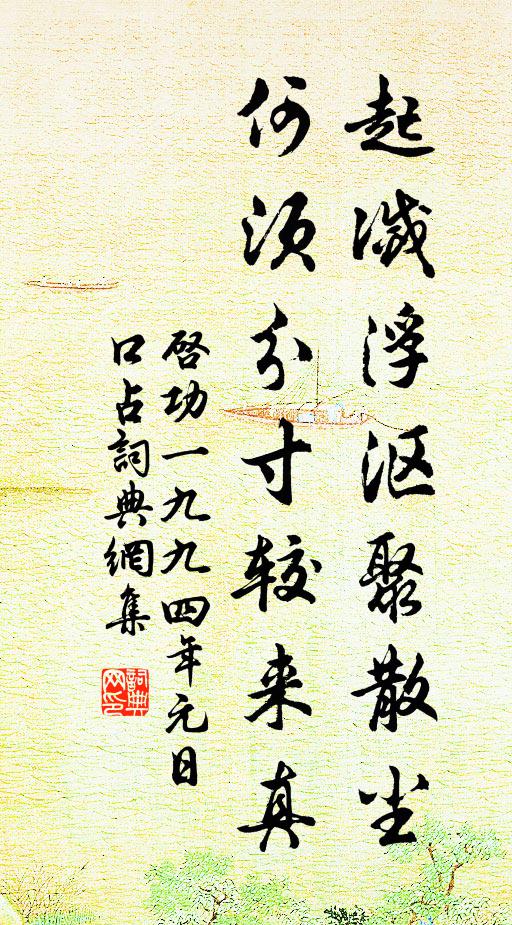 起灭浮沤聚散尘
何须分寸较来真
启功一九九四年元日
口占詞典網集
詞典
网印